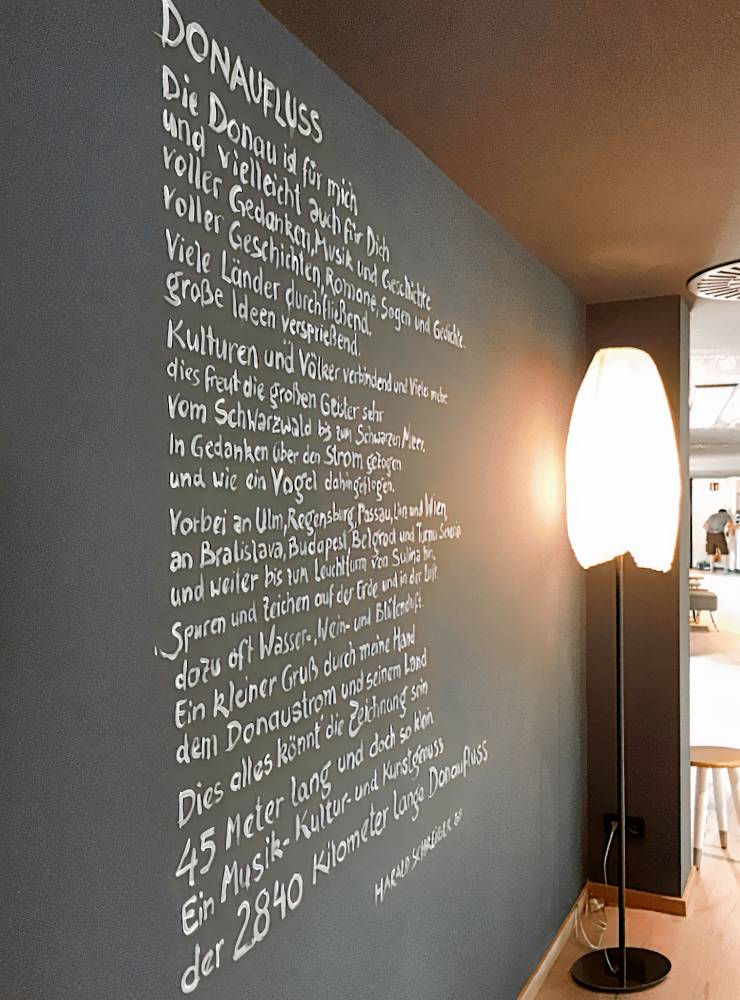 DONAUFLUSS
Die Donau ist für mich
und vielleicht auch für Dich
voller Gedanken, Musik und Geschichte
voller Geschichten, Romane, Sagen und Gedichte.
Viele Länder durchfließend.
große Ideen versprießend.
Kulturen und Völker verbindend und Vieles mehr
dies freut die großen Geister sehr
Vom Schwarzwald bis zum Schwarzen Meer,
In Gedanken über den Strom gezogen
und wie ein Vogel dahingeflogen.
Vorbei an Ulm, Regensburg, Passau, Linz und Wien,
an Bratislava, Budapest, Belgrad und Turnu Severin
und weiter bis zum Leuchtturm von Sulina hin,
Spuren und Zeichen auf der Erde und in der Luft.
dazu oft Wasser-, Wein- und Blütenduft.
Ein kleiner Gruß durch meine Hand
dem Donaustrom und seinem Land
Dies alles könnt' die Zeichnung sein
45 Meter lang und doch so klein.
Ein Musik- Kultur- und Kunstgenuss
der 2840 Kilometer lange Donaufluss
HARALD SCHREIBER